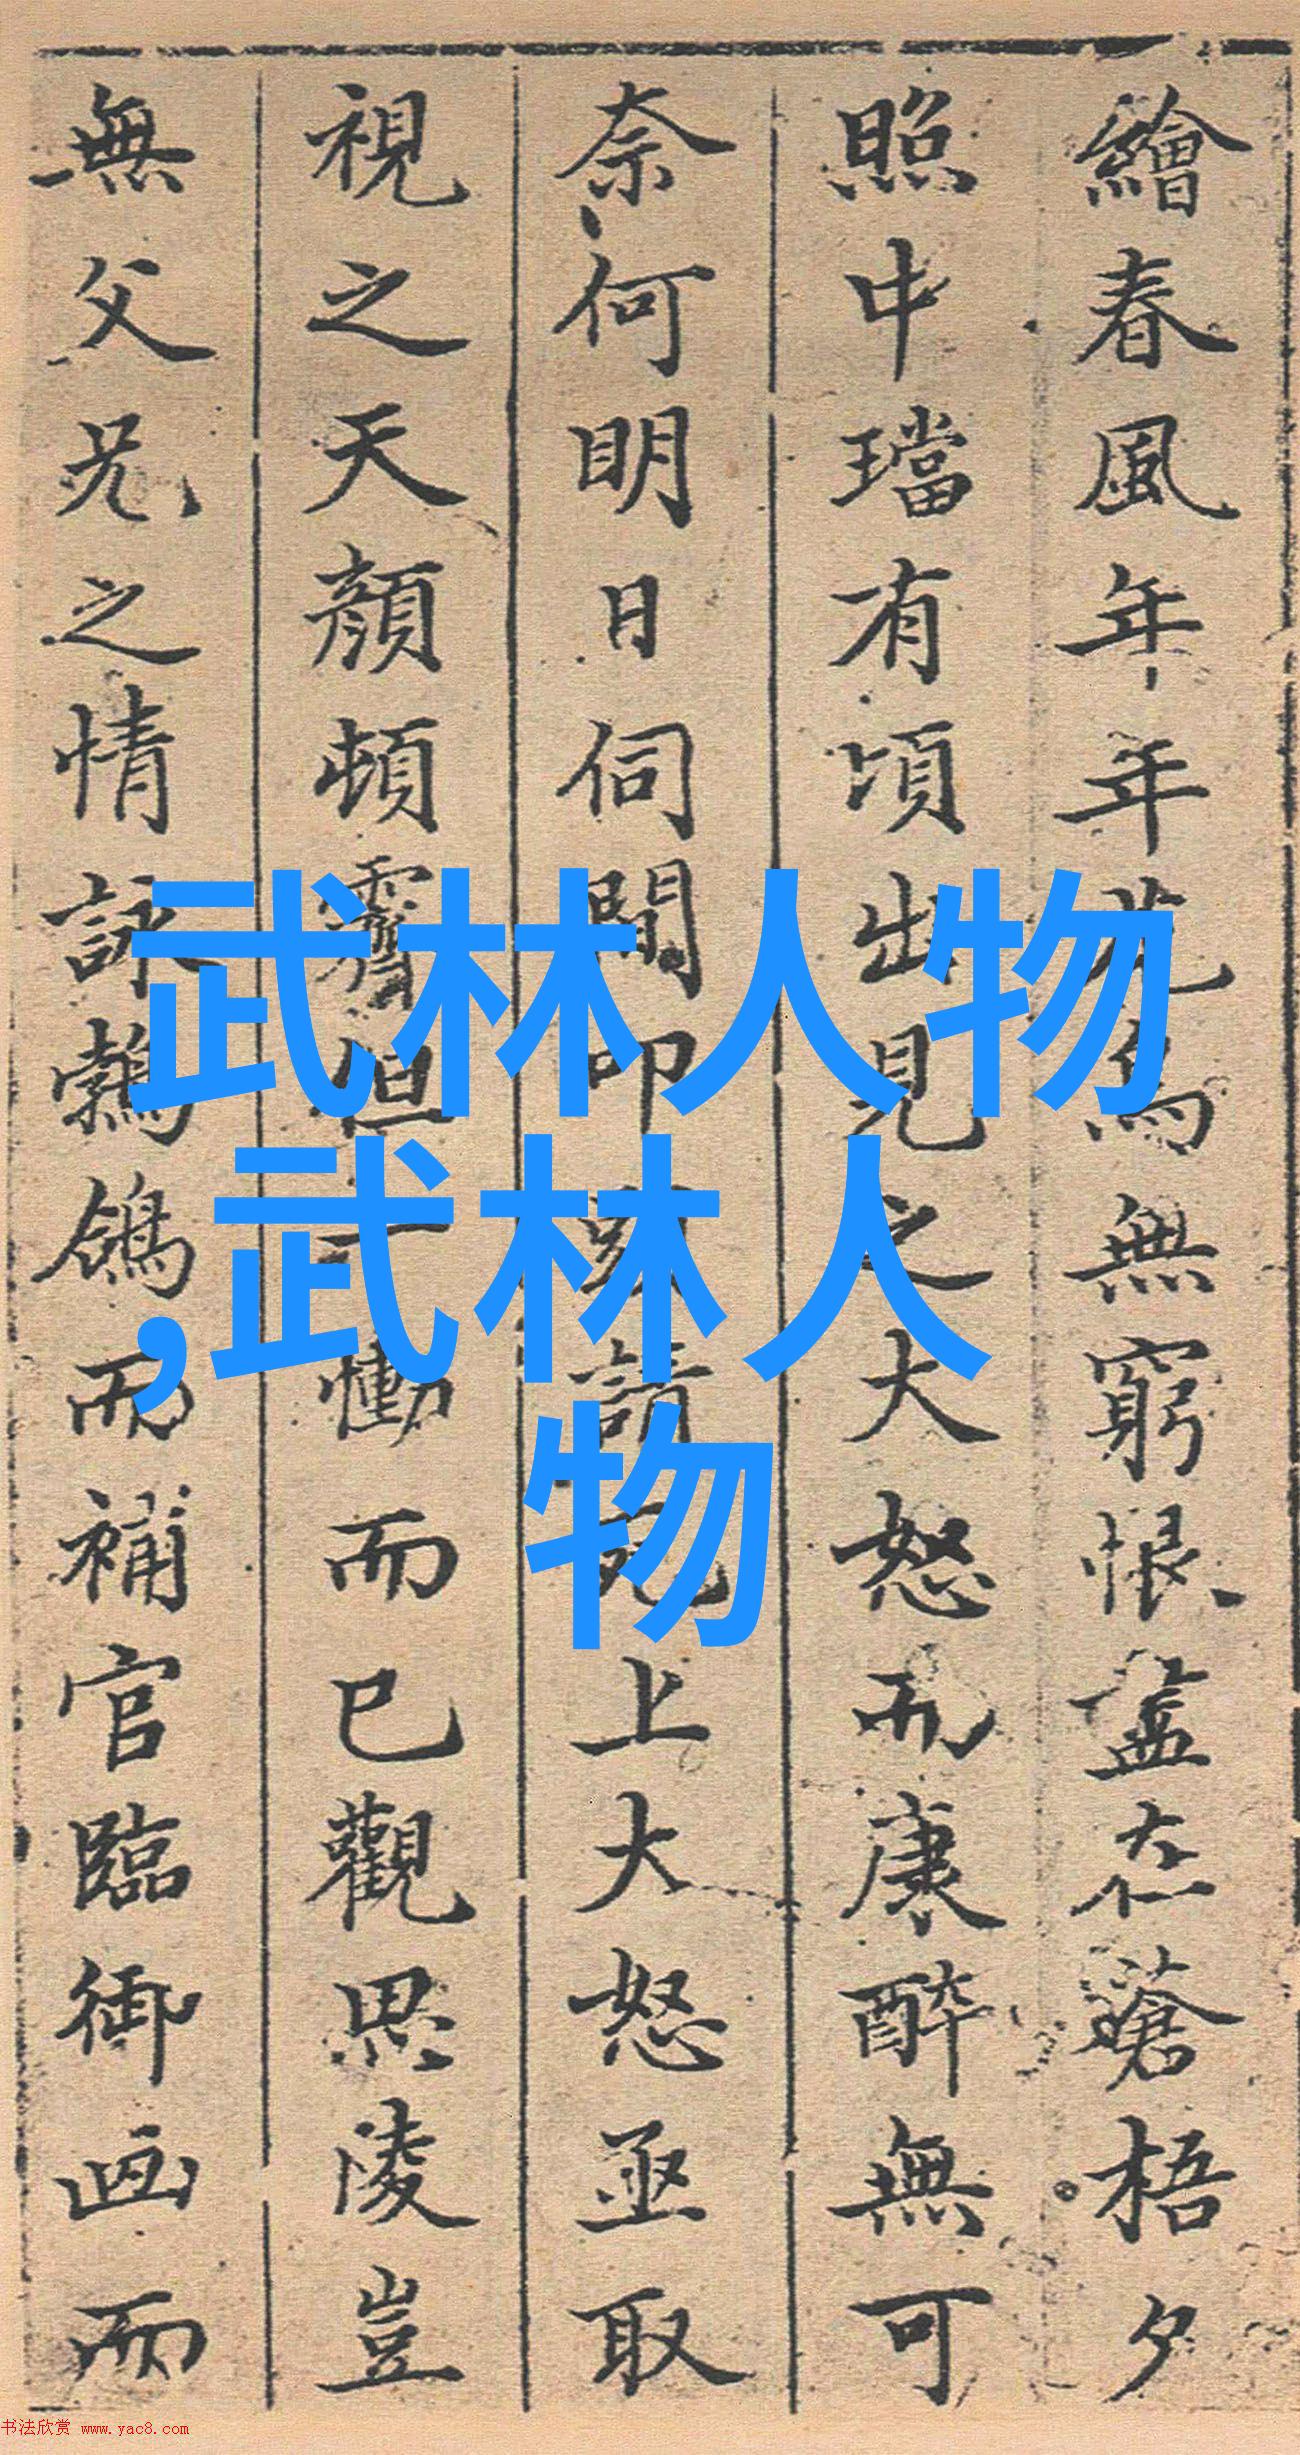 繪春風年年花鳥無窮恨盡在蒼梧夕
照中璫有頃出見之大怒而康醉無可
奈何明日伺間叩請死上大怒亟取
視之天顏頓霽但一慟而已觀思陵豈
無父兄之情詠鶺鴒而補官臨御画而
武林人物
,武林人
物
书法欣赏 www.yac8.com